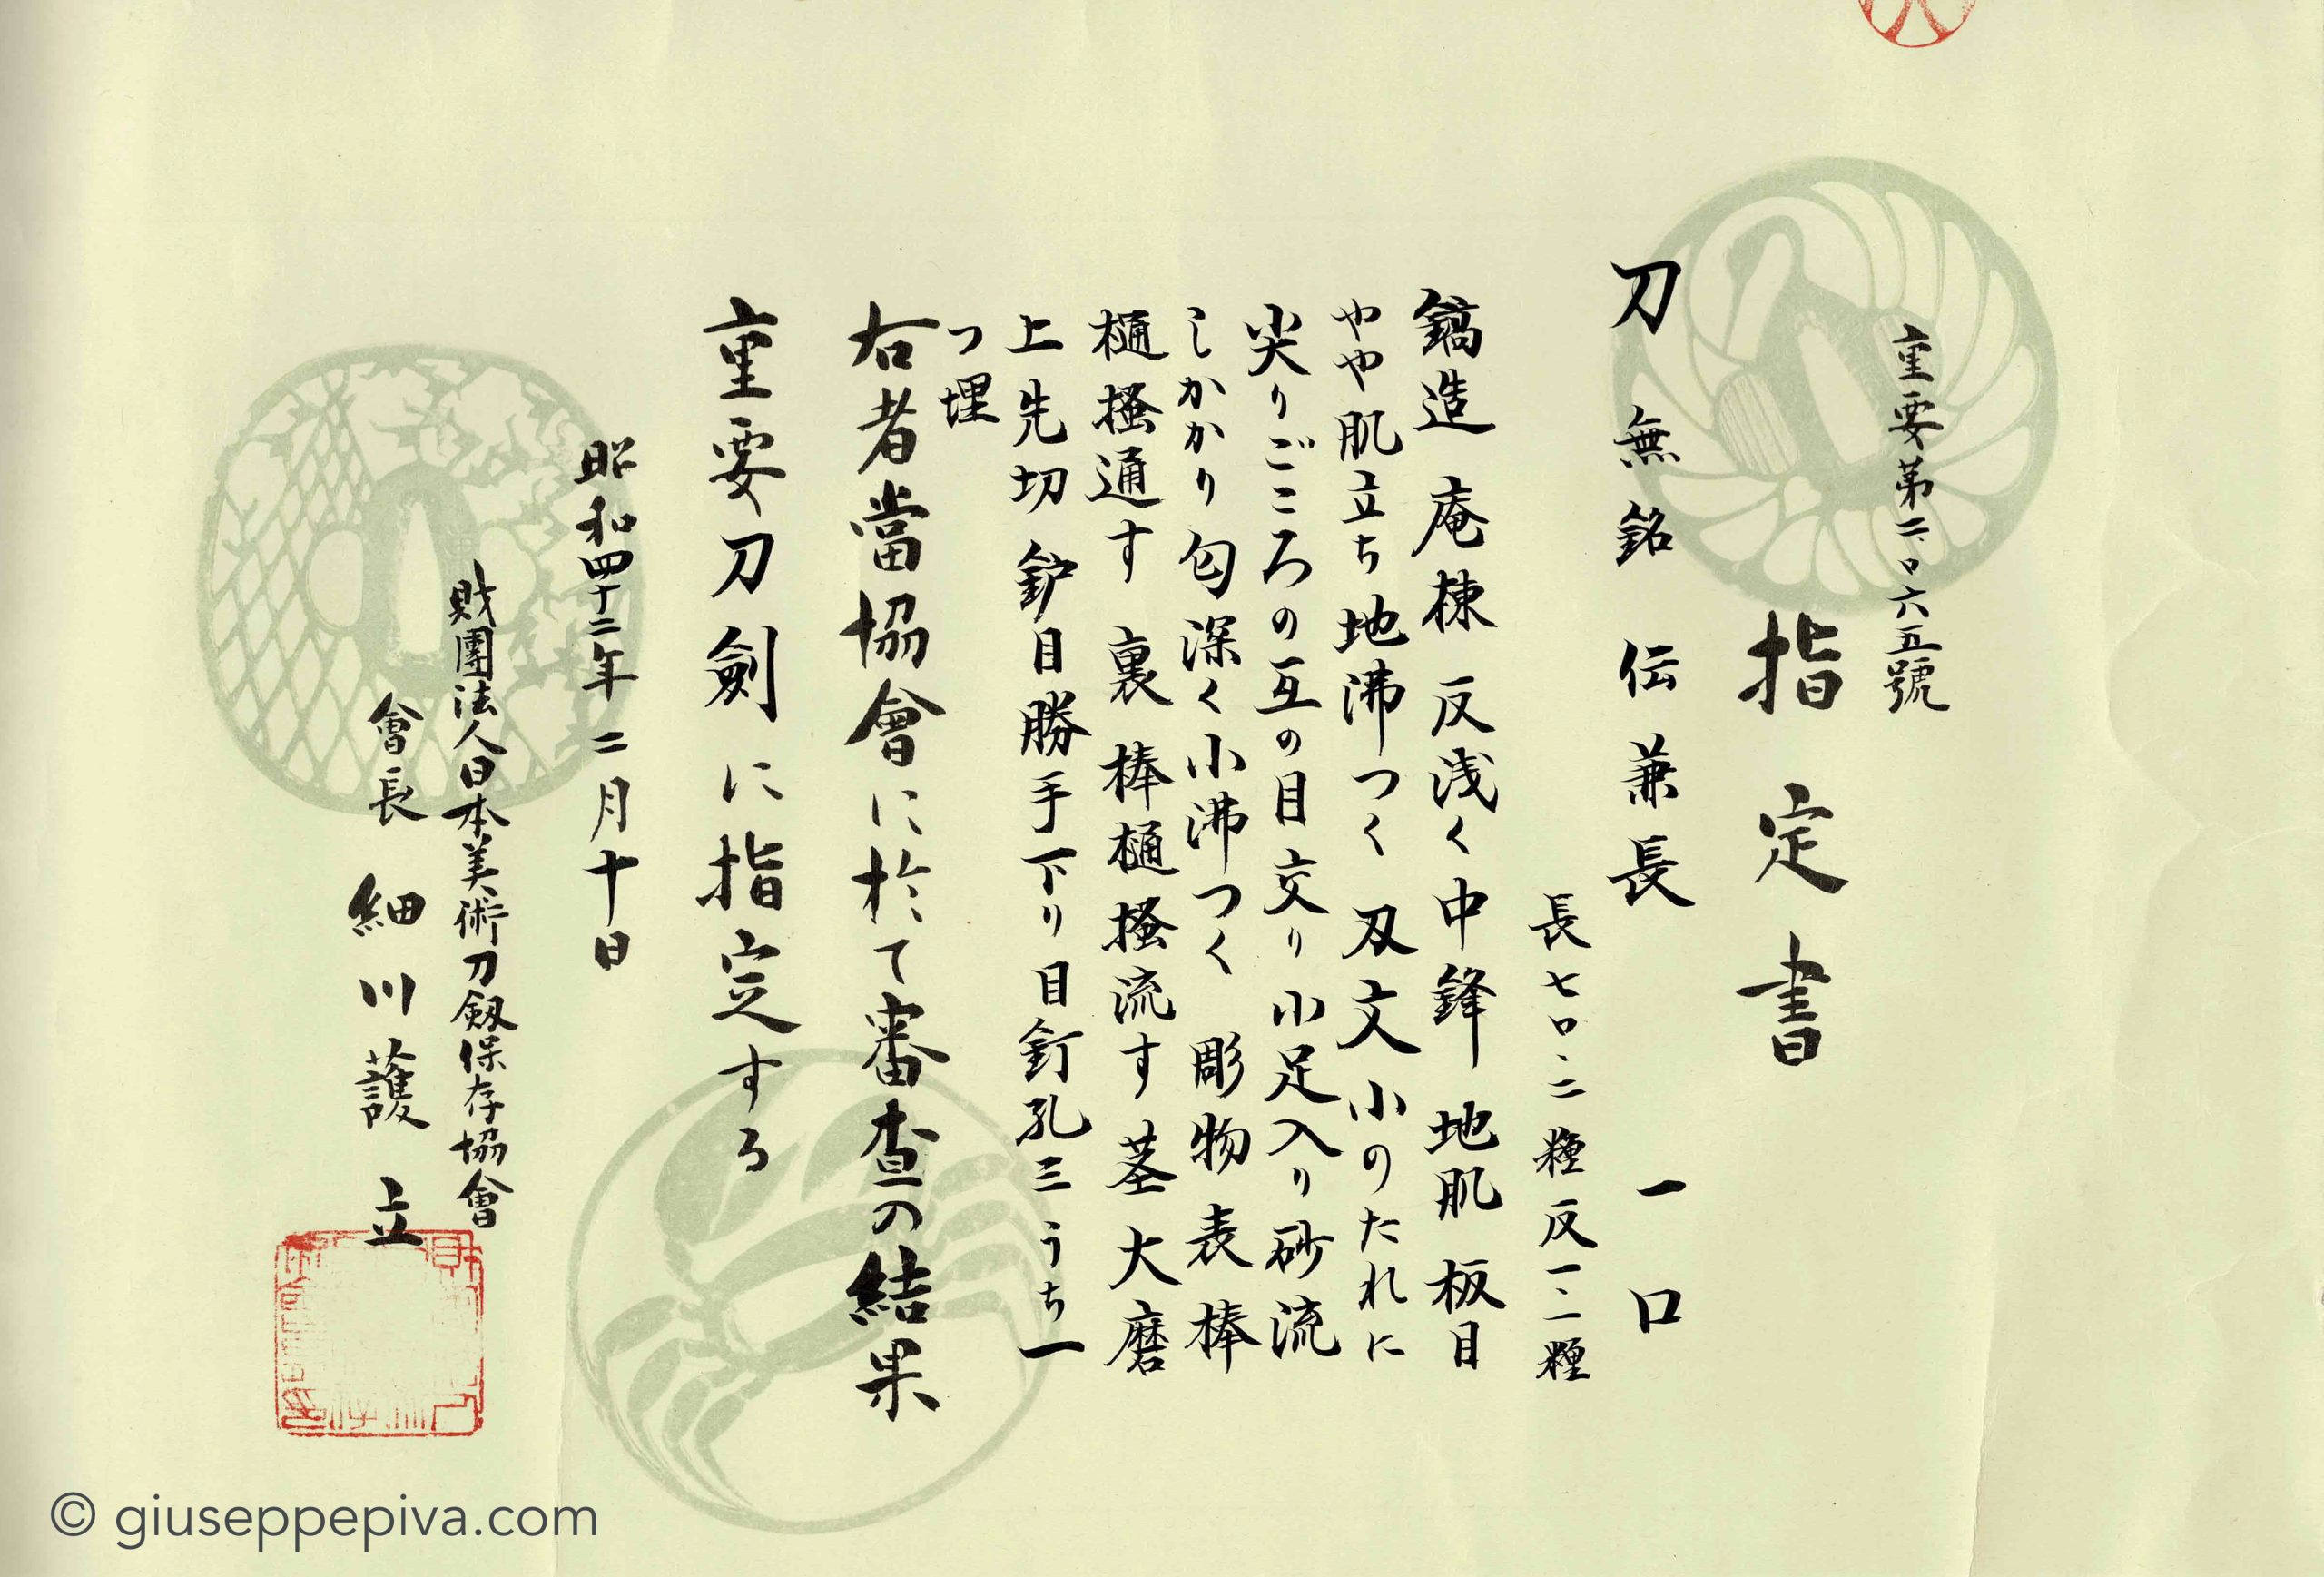 重要第二、〇六五號
指定書
刀 無銘 伝兼長 一口
長七〇・二糎 反一・二糎
鎬造 庵棟 反浅く中鋒 地肌 板目
やや肌立ち 地沸つく 刃文 小のたれに
尖りごころの互の目交り 小足入り 砂流
しかかり 匂深く 小沸つく 彫物 表棒
樋掻通す 裏 棒樋掻流す 茎 大磨
上 先切 鈩目勝手下り 目釘孔三 うち一
つ埋
右者當協會に於て審査の結果
重要刀劍に指定する
昭和四十二年二月十日
財團法人日本美術刀劔保存協會
會長 細川護立
© giuseppepiva.com